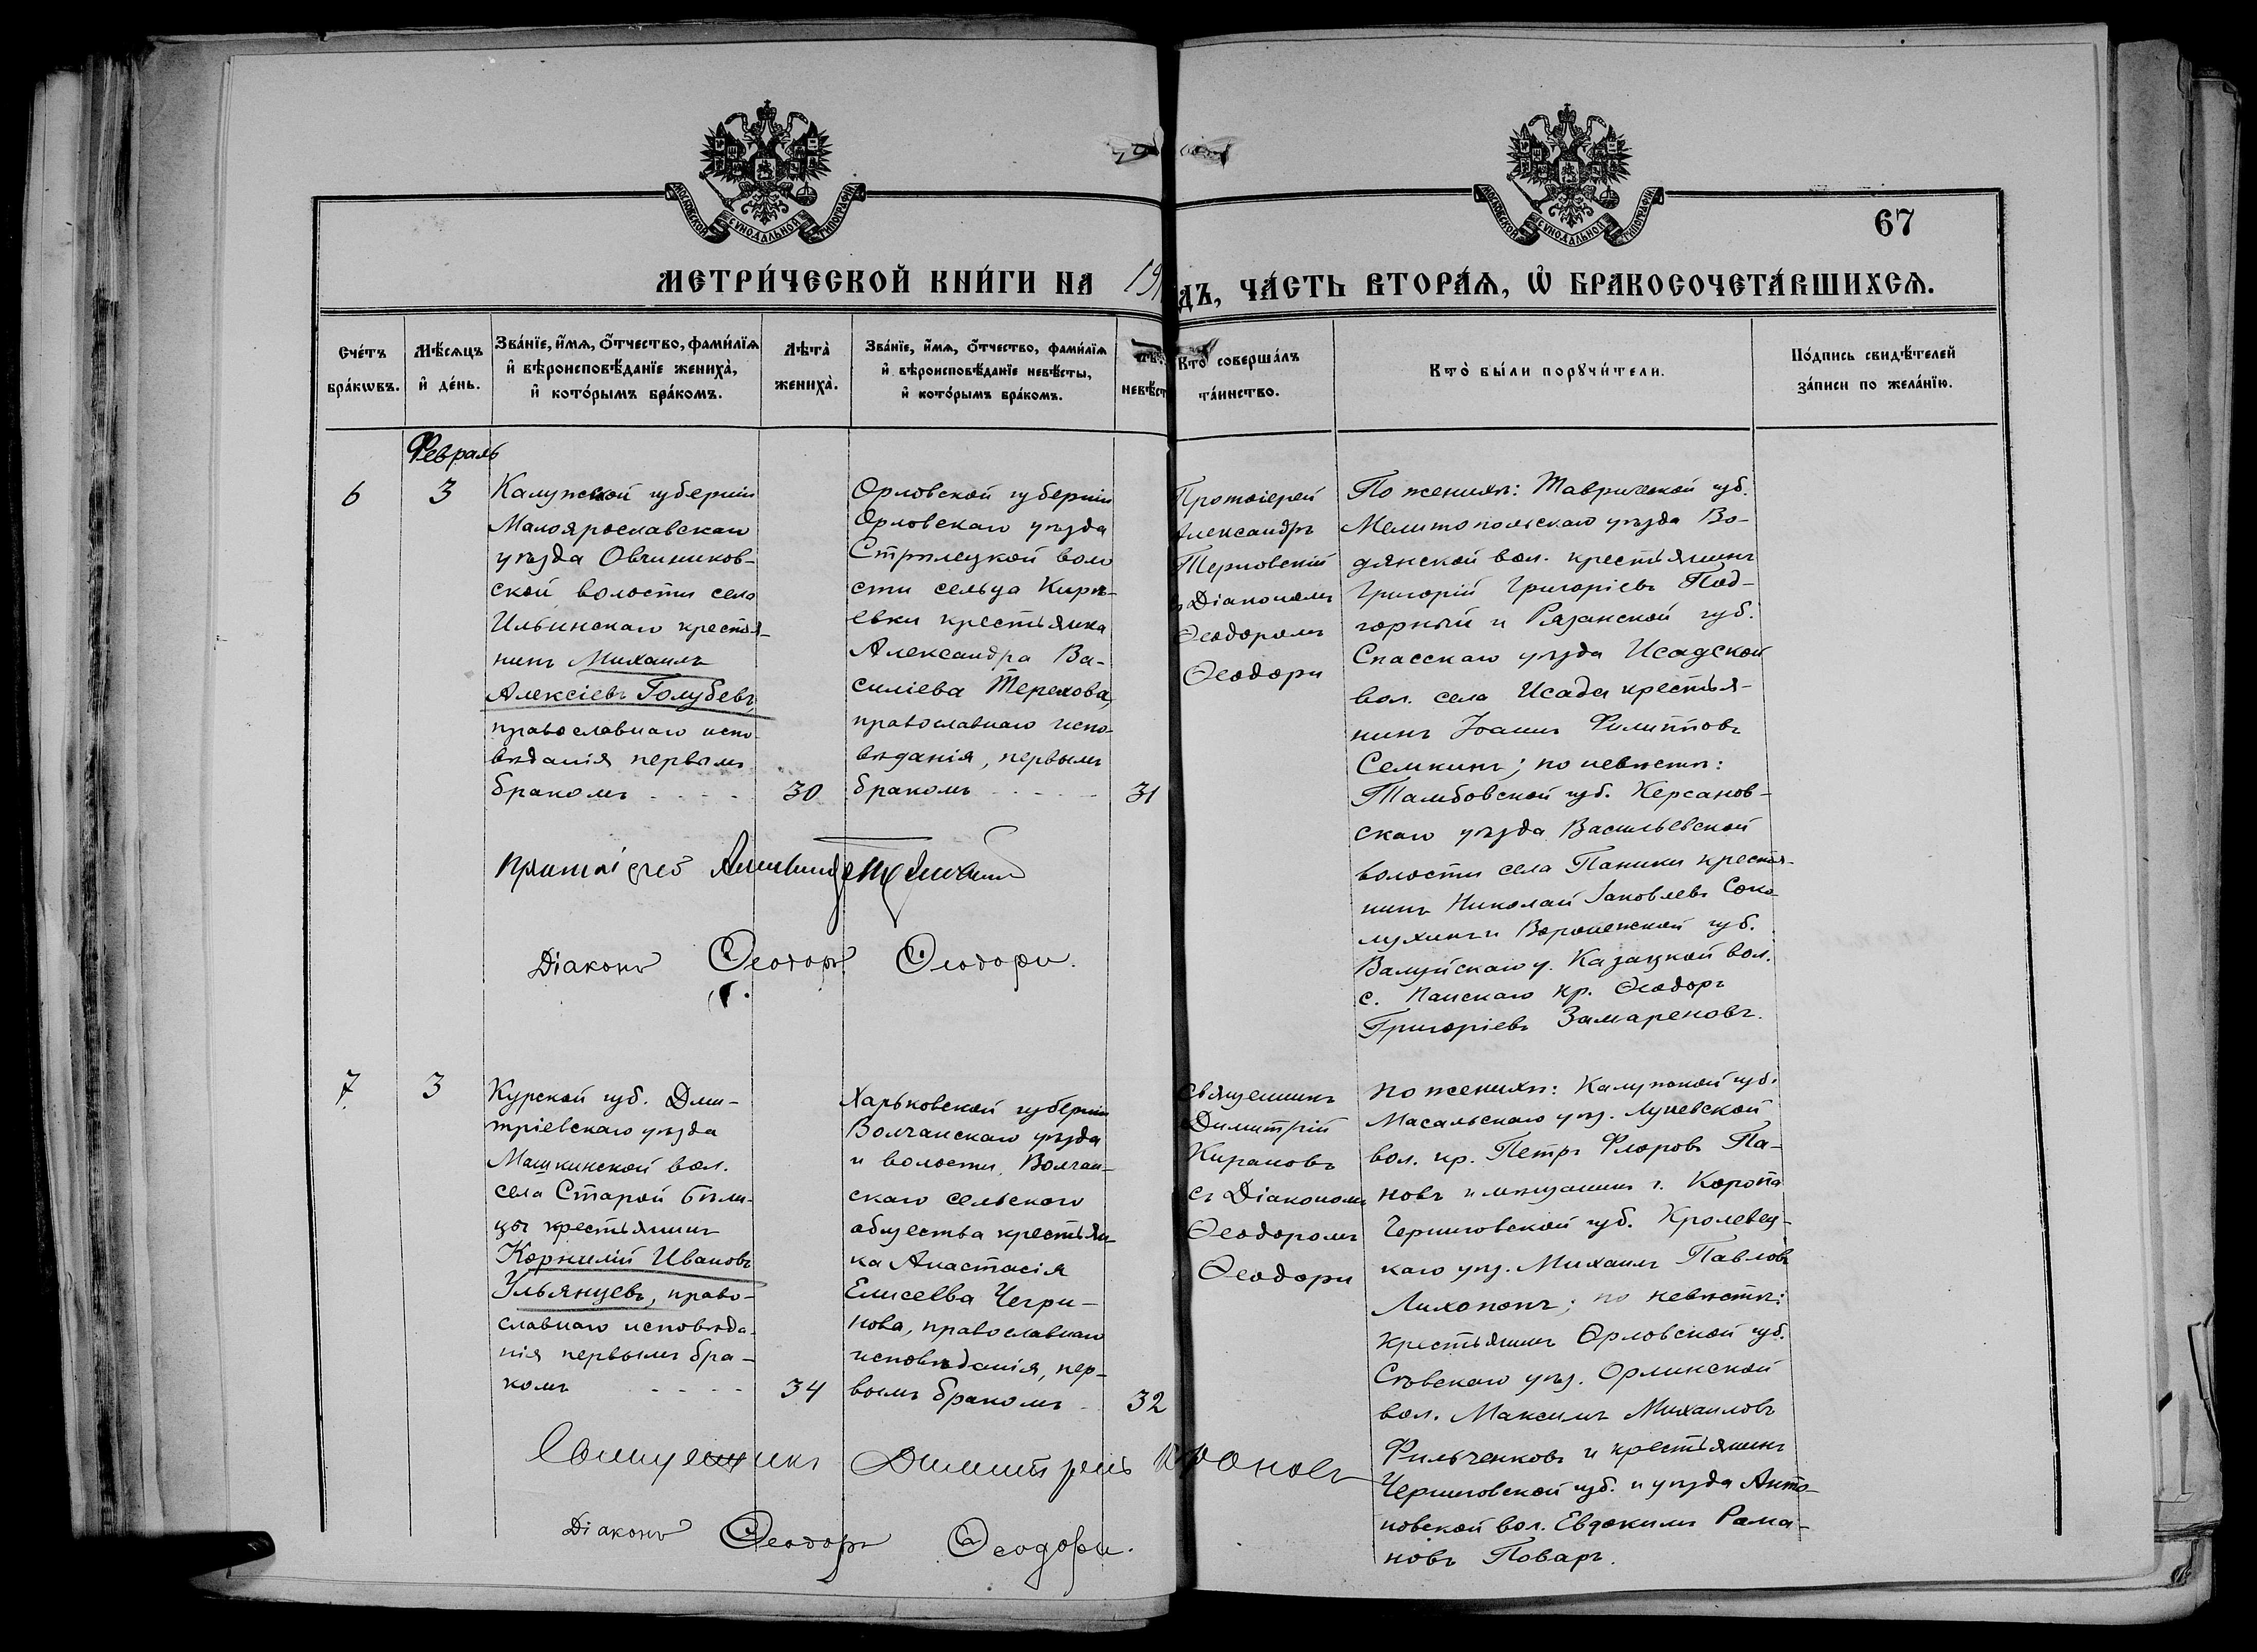 МОСКОВСКОЙ СУНОДАЛЬНОЙ ТИПОГРАФИИ
МОСКОВСКОЙ СУНОДАЛЬНОЙ ТИПОГРАФИИ
67
МЕТРИ́ЧЕСКОЙ КНИ́ГИ НА 19
ДЪ, ЧА́СТЬ ВТОРА́Ѧ, Ѡ БРАКОСОЧЕТА́ВШИХСѦ.
Сче́тъ бра́кѡвъ.
Мѣ́сѧцъ и де́нь.
Зва́нїе, и́мѧ, о́тчество, фами́лїѧ и вѣроисповѣ́данїе жениха̀, и кото́рымъ бра́комъ.
Лѣта̀ жениха̀.
Зва́нїе, и́мѧ, о́тчество, фами́лїѧ и вѣроисповѣ́данїе невѣ́сты, и кото́рымъ бра́комъ.
невѣ́ст
Кто̀ соверша́лъ та́инство.
Кто̀ бы́ли порꙋчи́тели.
По́дпись свидѣ́телей за́писи по жела́нїю.
Февраль
6
3
Калужской губерніи
Малоярославскаго
уѣзда Овчиников-
ской волости села
Ильинскаго крестья-
нинъ Михаилъ
Алексіевъ Голубевъ,
православнаго испо-
вѣданія первымъ
бракомъ
30
Орловской губерніи
Орловскаго уѣзда
Стрѣлецкой воло
сти сельца Кирѣ-
евки крестьянка
Александра Ва-
силіева Терехова,
православнаго испо-
вѣданія, первымъ
бракомъ
31
Протоіерей
Александръ
Терновскій
съ Діакономъ
Ѳеодоромъ
Ѳеодори
По женихѣ: Таврической губ.
Мелитопольскаго уѣзда Во-
дянской вол. крестьянинъ
Григорій Григоріевъ Под-
горный и Рязанской губ.
Спасскаго уѣзда Исадской
вол. села Исады крестья-
нинъ Іоаннъ Филипповъ
Семкинъ; по невѣстѣ:
Тамбовской губ. Керсанов-
скаго уѣзда Васильевской
волости села Паники крестья-
нинъ Николай Іаковлевъ Соко-
лухинъ и Воронежской губ.
Валуйскаго у. Казацкой вол.
с. Панскаго кр. Ѳеодоръ
Григоріевъ Замареновъ.
Протоіерей Александръ Терновскій
Діаконъ Ѳеодоръ Ѳеодори.
7
3
Курской губ. Дми-
тріевскаго уѣзда
Машкинской вол.
села Старой Бѣли-
цы крестьянинъ
Корнилій Ивановъ
Ульянцевъ, право-
славнаго исповѣда-
нія первымъ бра-
комъ
34
Харьковской губерніи
Волчанскаго уѣзда
и волости, Волчан-
скаго сельскаго
общества крестьян-
ка Анастасія
Елисеева Чегри-
нова, православнаго
исповѣданія, пер-
вымъ бракомъ
32
Священникъ
Димитрій
Кирановъ
съ Діакономъ
Ѳеодоромъ
Ѳеодори
по женихѣ: Калужской губ.
Масальскаго уѣз. Луневской
вол. кр. Петръ Флоровъ Па-
новъ и мѣщанинъ г. Коропа
Черниговской губ. Кролевец-
каго уѣз. Михаилъ Павловъ
Лихопопъ; по невѣстѣ:
крестьянинъ Орловской губ.
Сѣвскаго уѣз. Орлинской
вол. Максимъ Михаиловъ
Фильченковъ и крестьянинъ
Черниговской губ. и уѣзда Анто-
новской вол. Евдокимъ Рома-
новъ Поваръ.
Священникъ Димитрій Кирановъ
Діаконъ Ѳеодоръ Ѳеодори.